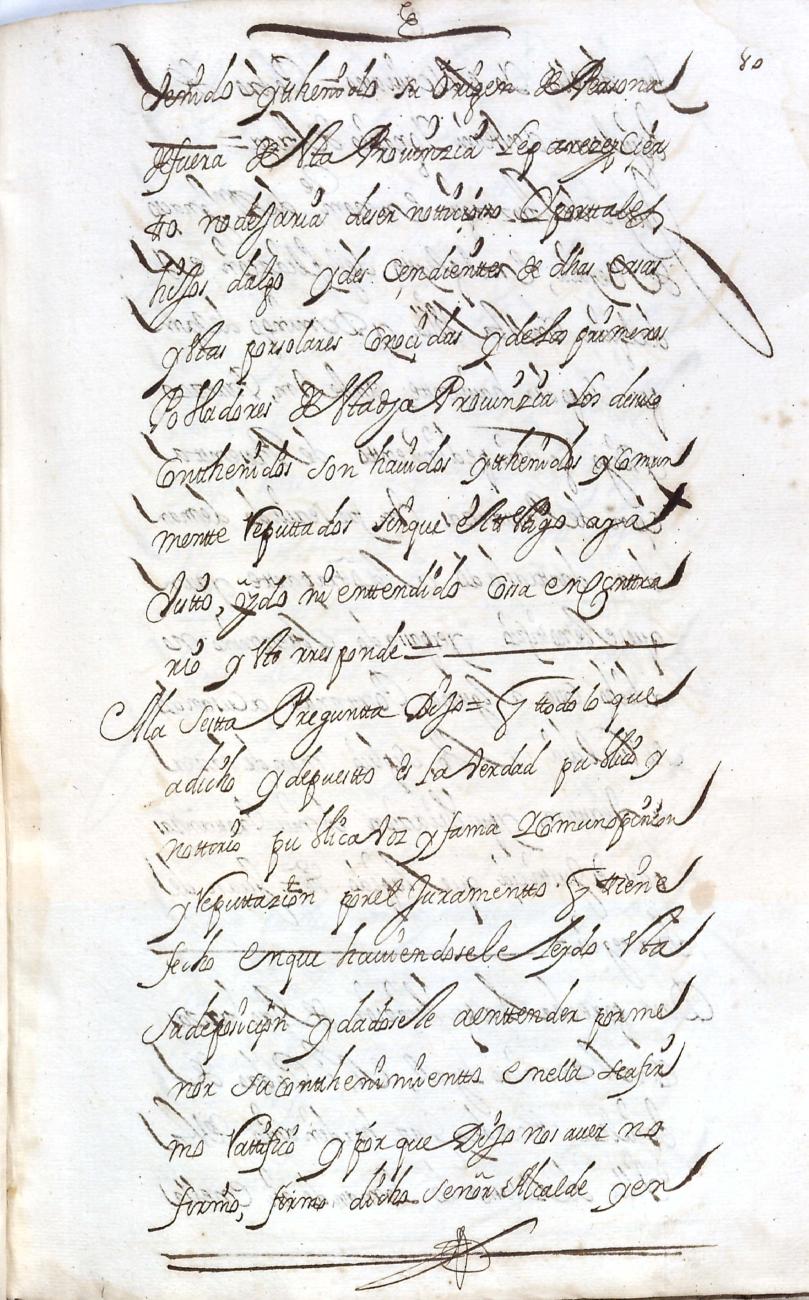 80
Venido y thenido su Origen de Persona
defuera de Vta Provinzia Le parezez Cier
to. no dejaria de ser nottizioso. Y por ttales
hissos dalgo y des Cendienttes de dhas Casas
y Vtas por solares Conocidas y de Los primeros
Pobladores de Vta dza Provinzia Los de uso
Conthenidos son havidos y thenidos y Comun
mentte Reputtados sin que este ttestigo aya
Vistto, oydo ni enttendido Cosa en Conttra
rio y Vto rresponde =
A la Seitta Preguntta Dijo = q ttodo lo que
a dicho y depuestto es La Verdad publico y
nottorio publica Voz y fama Y Comun opinion
y Reputtazion por el Juramentto q ttiene
fecho en que haviendosele Leydo Vta
Su deposicion y dadosele a enttender por me
nor su conthenimientto en ella Se afir
mo Rattifico y por que Dijo no saver no
firmó, firmo dicho Señor Alcalde y en